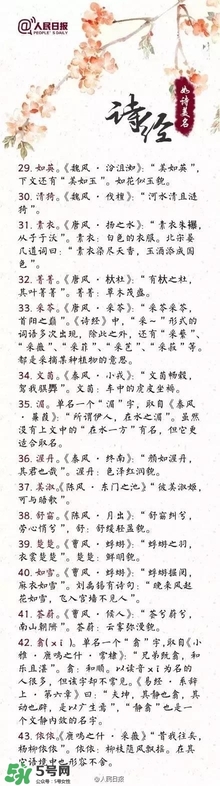 人民日报
PEOPLE'S DAILY
如诗美名
诗经
29. 如英。《魏风·汾沮洳》：“美如英”，
下文还有“美如玉”。如花似玉貌。
30. 清猗。《魏风·伐檀》：“河水清且涟
猗”。
31. 素衣。《唐风·扬之水》：“素衣朱襮，
从子于沃”。素衣：白色的衣服。北宋晏
几道词曰：“素衣染尽天香，玉酒添成国
色”。
32. 菁菁。《唐风·杕杜》：“有杕之杜，
其叶菁菁”。菁菁：草木茂盛。
33. 采苓。《唐风·采苓》：“采苓采苓，
首阳之巅”。《诗经》中，“采一”形式的
词语多次出现，除此之外，还有“采蘩”、
“采薇”、“采菲”、“采艺”、“采菽”等。
都是采摘某种植物的意思。
34. 文茵。《秦风·小戎》：“文茵畅毂，
驾我骐馵”。文茵：车中的虎皮坐褥。
35. 湄。单名一个“湄”字，取自《秦风
·蒹葭》：“所谓伊人，在水之湄”。虽然
没有上文中的“在水一方”有名，但它更
适合取名。
36. 渥丹。《秦风·终南》：“颜如渥丹，
其君也哉”。渥丹：色泽红润貌。
37. 美淑。《陈风·东门之池》：“彼美淑姬，
可与晤歌”。
38. 舒窈。《陈风·月出》：“舒窈纠兮，
劳心悄兮”。舒：舒缓轻盈貌。
39. 楚楚。《曹风·蜉蝣》：“蜉蝣之羽，
衣裳楚楚”。楚楚：鲜明貌。
40. 如雪。《曹风·蜉蝣》：“蜉蝣掘阅，
麻衣如雪”。刘禹锡有诗句：“晚来风起
花如雪，飞入宫墙不见人”。
41. 荟蔚。《曹风·候人》：“荟兮蔚兮，
南山朝隮”。荟蔚：云雾弥漫貌。
42. 翕（xi）。单名一个“翕”字，取自《小
雅·鹿鸣之什·常棣》：“兄弟既翕，和
乐且湛”。翕：和顺。以读音xi为名的
人很多，但该字却不常见。《易经·系辞
上·第六章》曰：“夫坤，其静也翕，其
动也辟，是以广生焉”，“静翕”也是一
个文静内敛的名字。
43. 依依。《鹿鸣之什·采薇》“昔我往矣，
杨柳依依”。依依：柳枝随风飘摇。在其
它语境中也形容不舍。
@人民日报
5号网